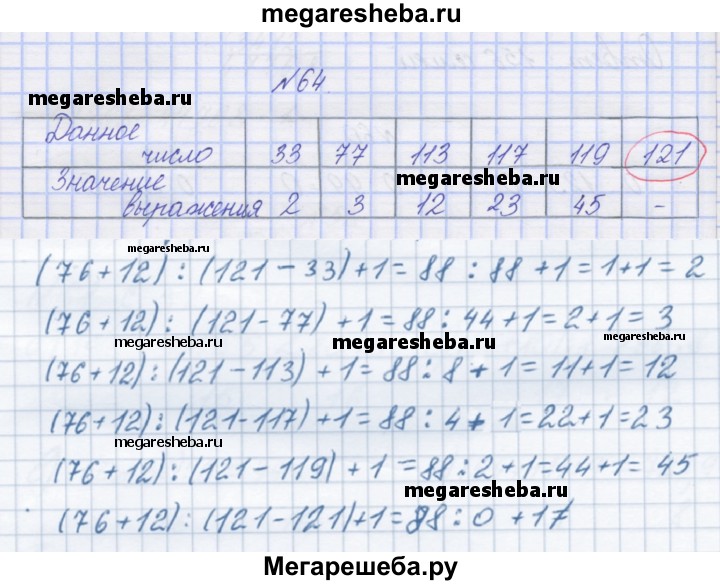 megaresheba.ru
№64.
megaresheba.ru
Данное число 33 77 113 117 119 121
megaresheba.ru
Значение выражения 2 3 12 23 45 -
megaresheba.ru
(76+12) : (121-33)+1= 88 : 88 +1=1+1= 2
(76+12) : (121-77) +1=88 : 44+1=2+1= 3
megaresheba.ru
megaresheba.ru
(76+12) : (121-113) + 1= 88 : 8 + 1= 11+1= 12
(76+12) : (121-117) +1= 88 : 4+ 1=22+1=23
megaresheba.ru
(76+12) : (121-119) + 1 =88:2+1=44+1= 45
megaresheba.ru
(76+12) : (121-121)+1=88:0 +1≠
megaresheba.ru
Мегарешеба.ру